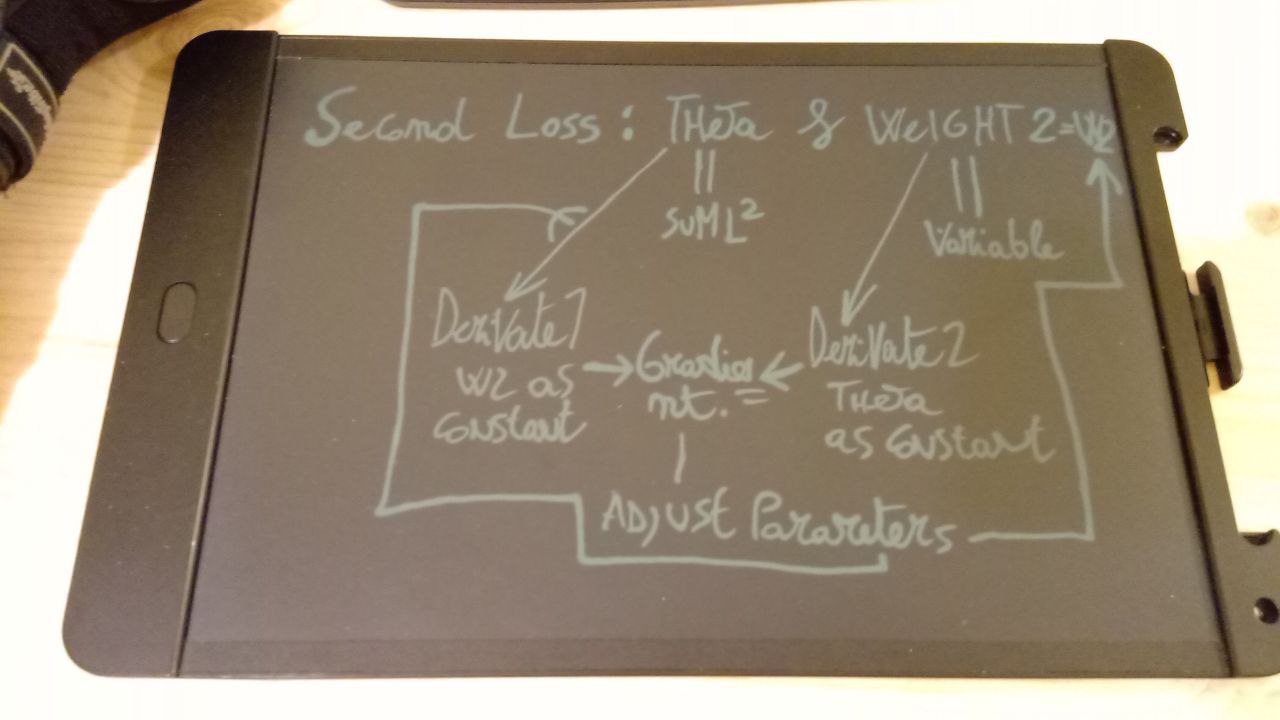 Second Loss: THeTa & WeIGHT 2=W2
SUM L²
Variable
DeriVate 1
W2 as
Constant
Gradie
nt.
DeriVate 2
THeTa
as Constant
ADJUSt Parameters